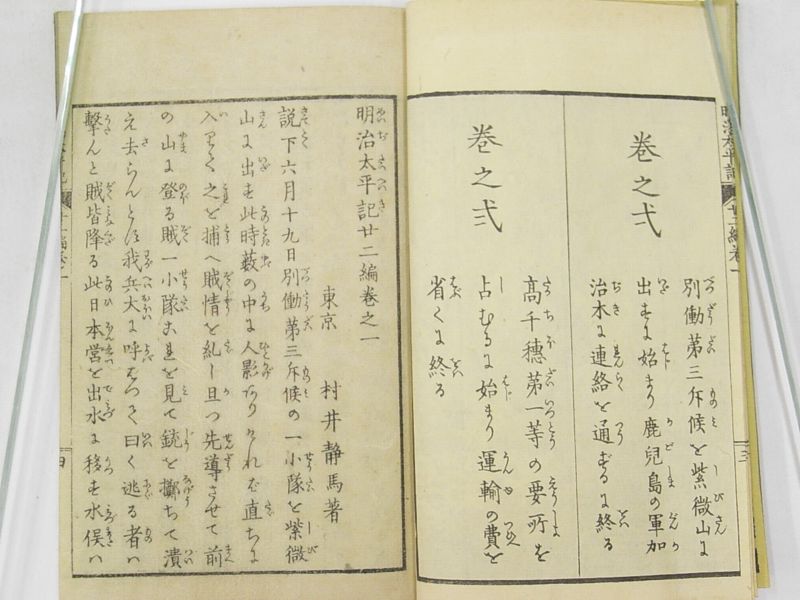 明治太平記 廿二編巻一 三
巻之弌
別働第三斥候を紫微山に
出すに始まり鹿児島の軍加
治木に連絡を通ずるに終る
巻之弍
高千穂第一等の要所を
占むるに始まり運輸の費を
省くに終る
明治太平記廿二編巻之一
東京 村井静馬著
説下六月十九日別働第三斥候の一小隊を紫微
山に出す此時藪の中に人影ありければ直ちに
入りて之を捕へ賊情を糺し且つ先導させて前
の山に登る賊一小隊これを見て銃を擲ちて潰
え去らんとす我兵大に呼はつて曰く逃る者ハ
撃んと賊皆降る此日本営を出水に移す水俣ハ
四